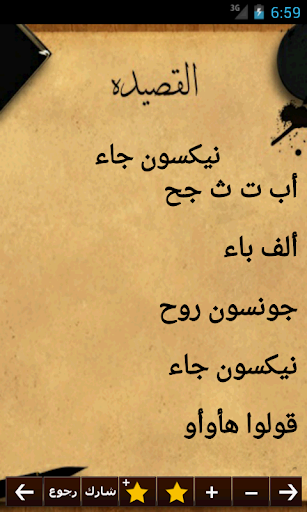 3G 6:59
القصيده
نيكسون جاء
أب ت ث جح
ألف باء
جونسون روح
نيكسون جاء
قولوا هأوأو
رجوع شارك + + −